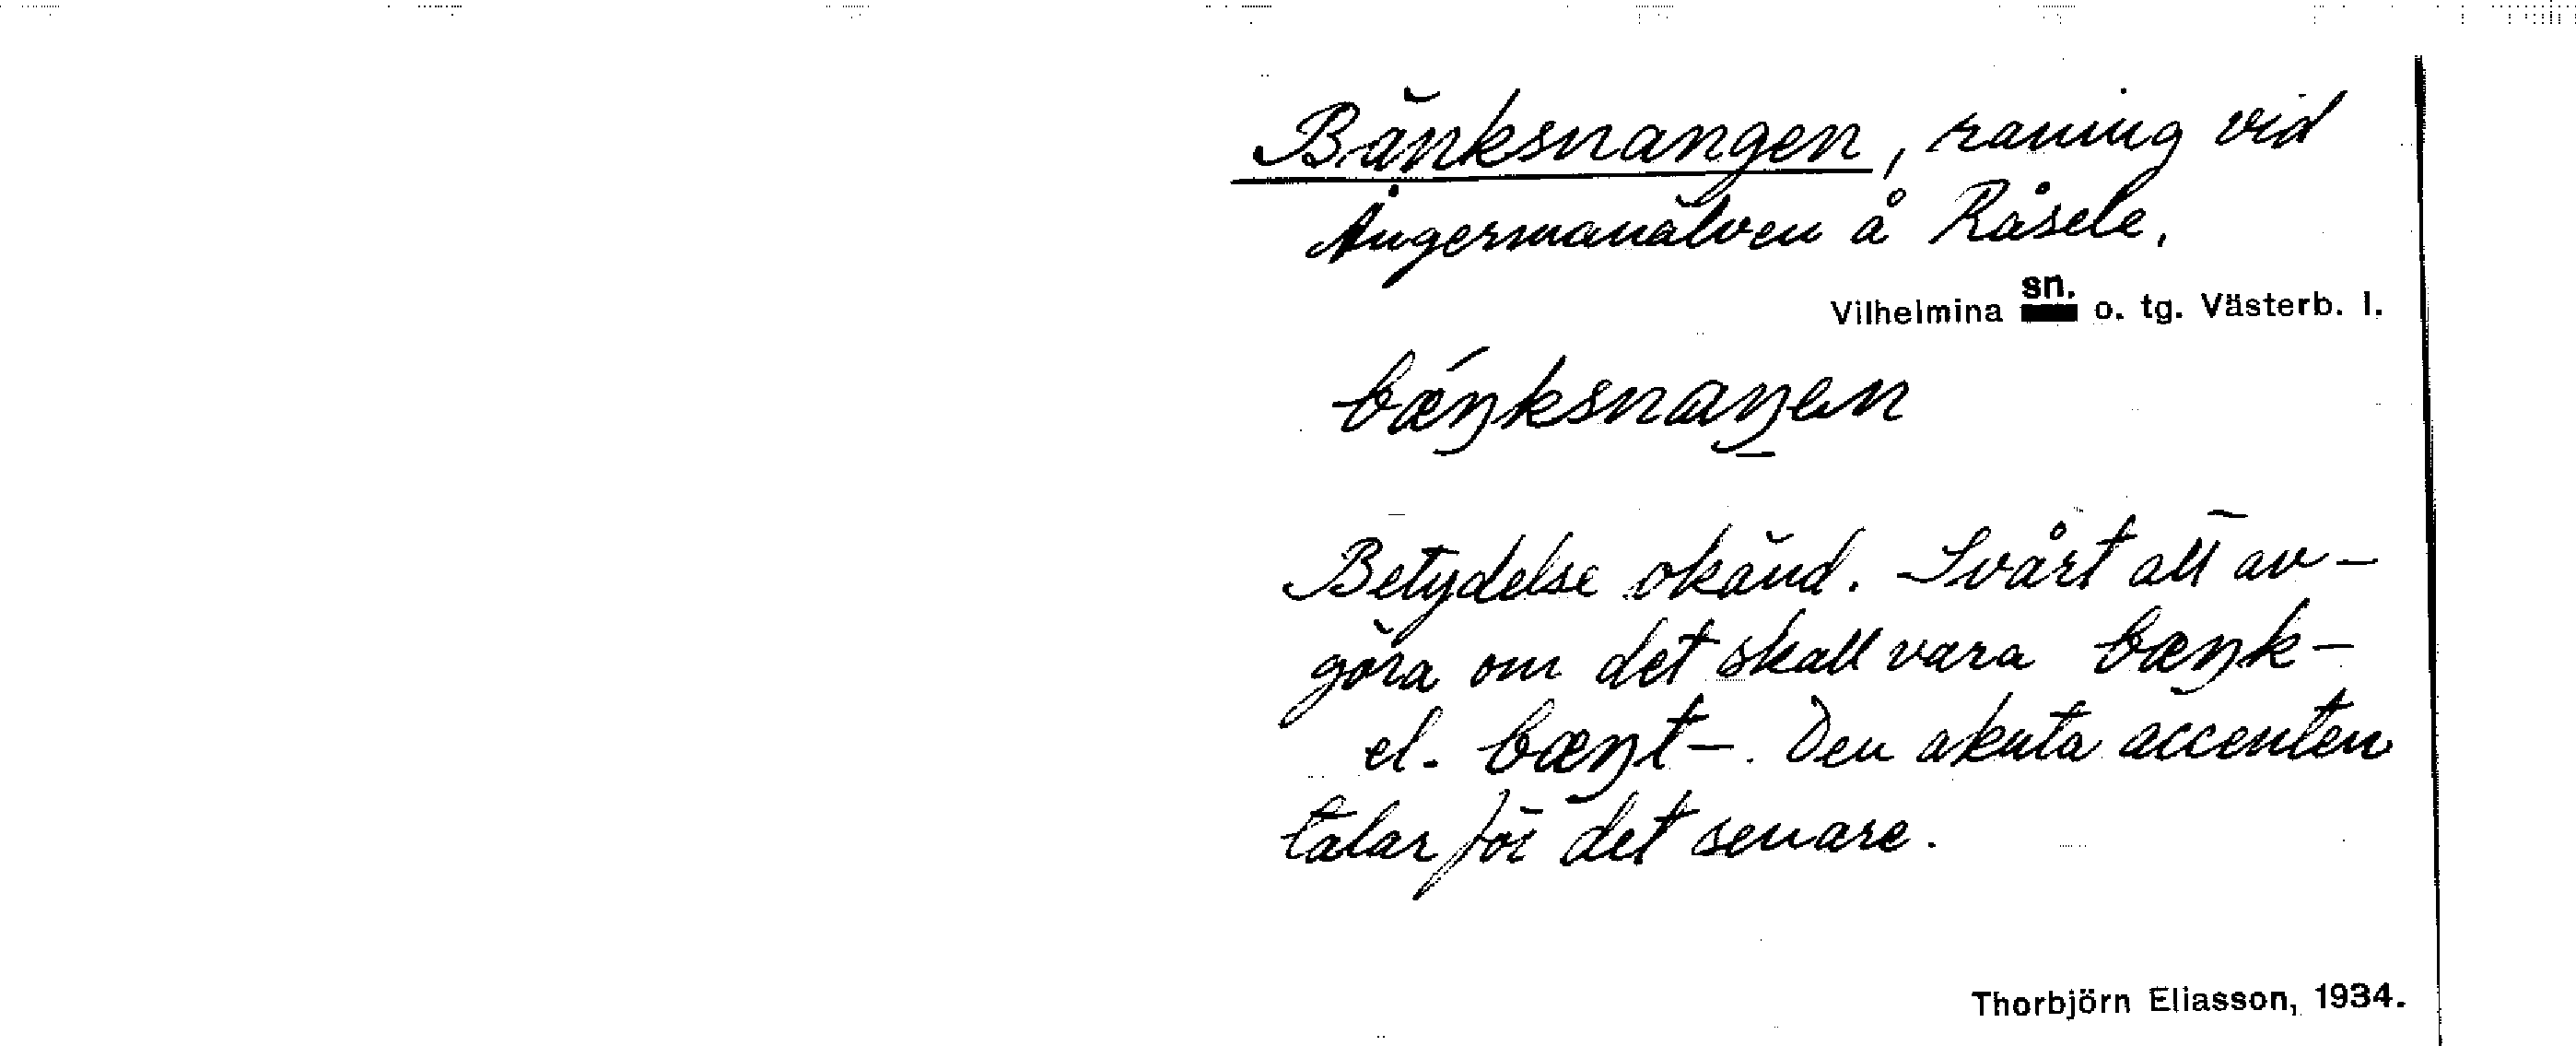 Bänksnangen, raning vid
Ångermanälven å Råsele.
Vilhelmina sn. o. tg. Västerb. l.
bǽŋksnaŋen
Betydelse okänd. Svårt att av-
göra om det skall vara bæŋk-
el. bæŋt-. Den akuta accenten
talar för det senare.
Thorbjörn Eliasson, 1934.